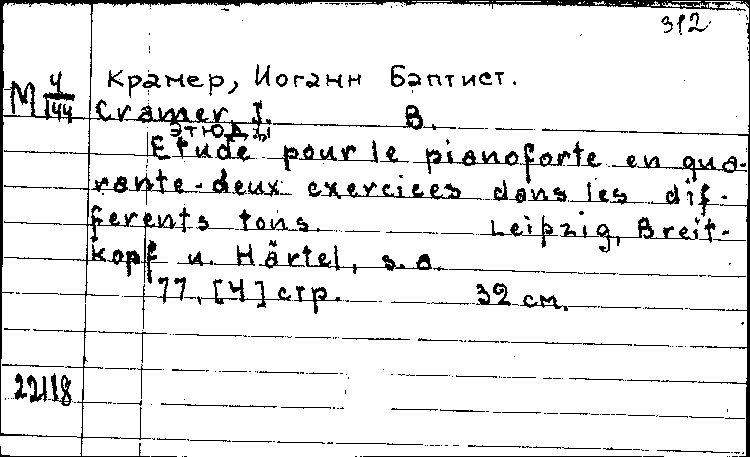 312
Крамер, Иоганн Баптист.
М 4/144 Cramer, I. B.
Этюды
Etude pour le pianoforte en qua-
rante-deux exercices dans les dif-
ferents tons. Leipzig, Breit-
kopf u. Härtel, s.a.
77, [4] стр. 32 см.
22118